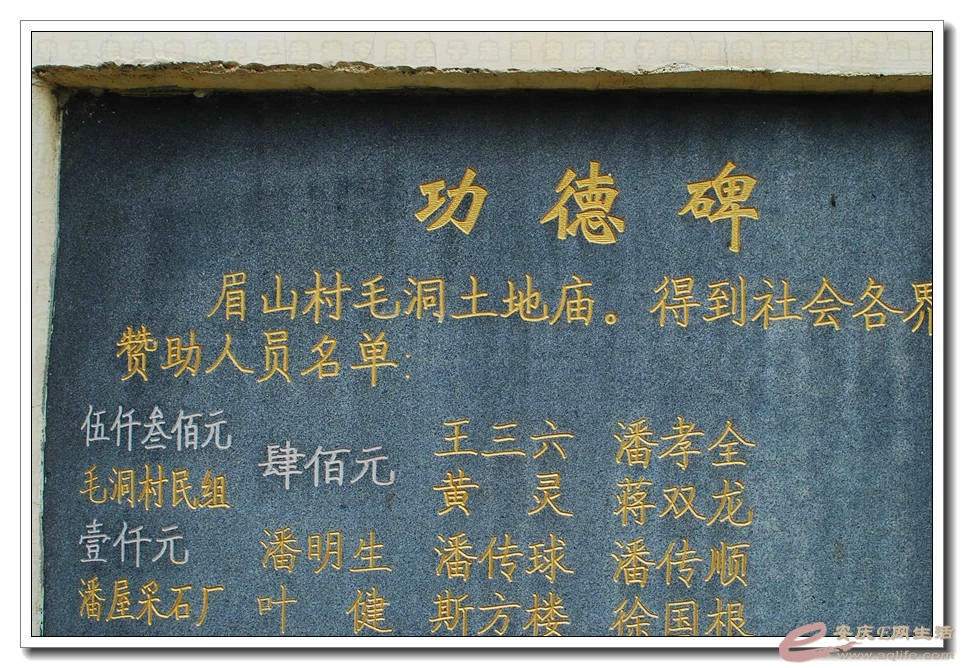 功德碑
眉山村毛洞土地庙。得到社会各界
赞助人员名单:
伍仟叁佰元
毛洞村民组
壹仟元
潘屋采石厂
肆佰元
潘明生
叶健
王三六 潘孝全
黄灵 蒋双龙
潘传球 潘传顺
斯方楼 徐国根
安庆E网生活
www.aqlife.com